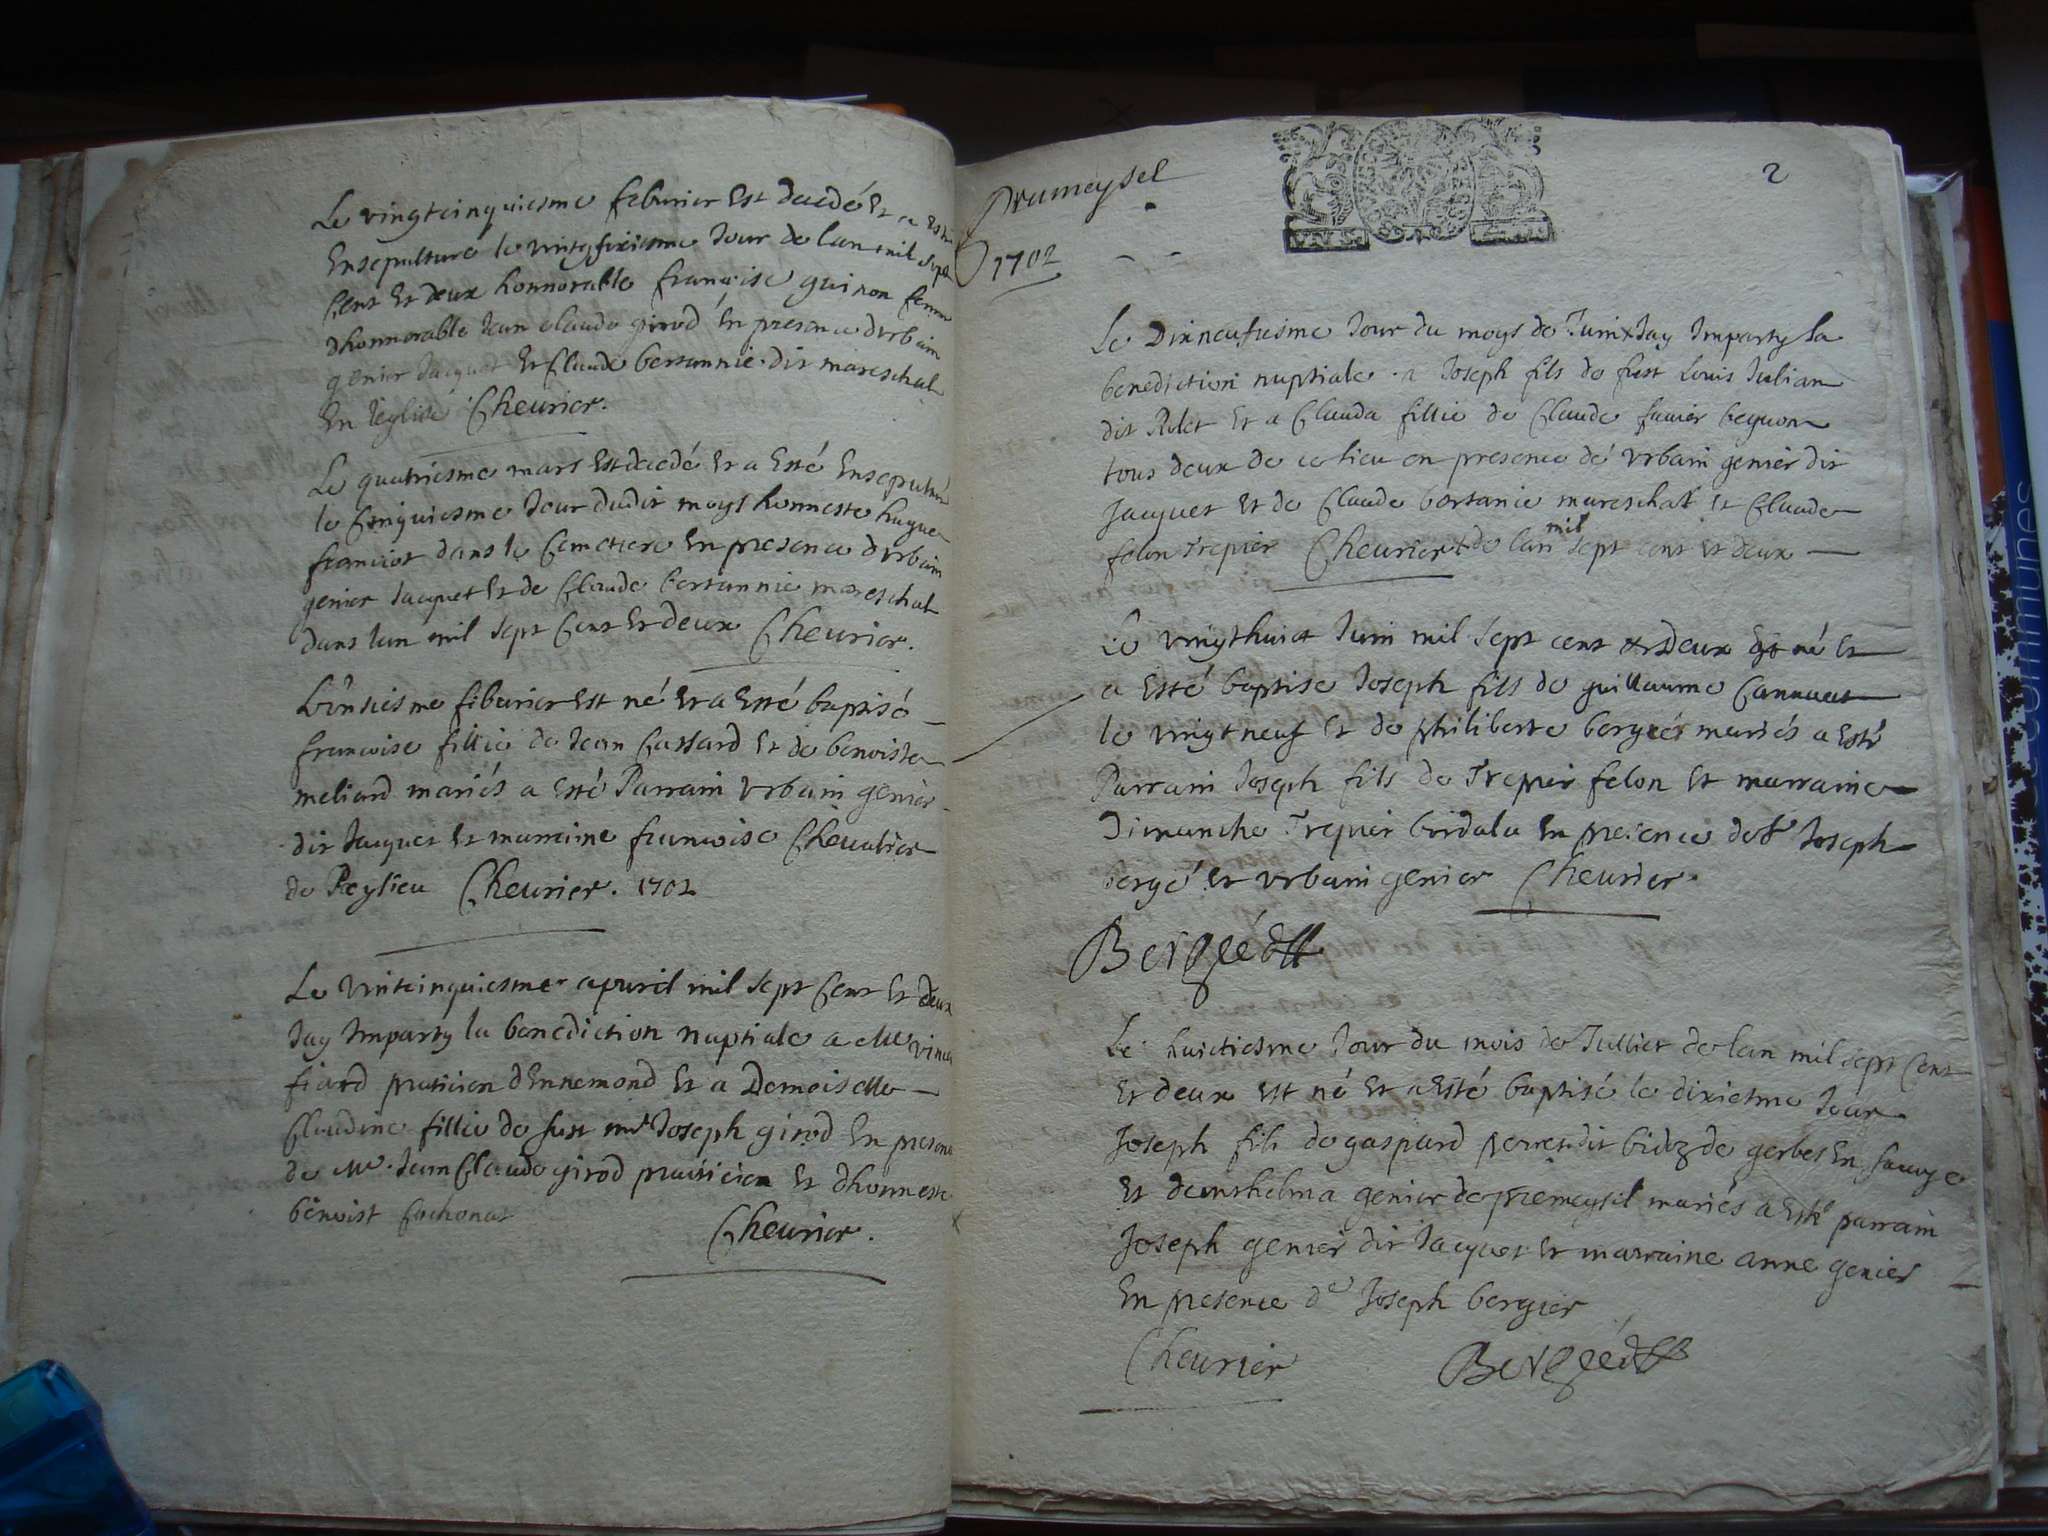 Le vingtcinquiesme feburier Est decedé Et a Esté
Ensepulturé le vintgsixiesme Jour de lan mil sept
Cent Et deux honnorable françoise guinon femme
dhonnorable Jean claude girod En presence d'urbain
genier Jacquet Et Claude bertannie dit mareschal
En l'eglise Cheurier.
Le quatriesme mars Est decedé Et a Esté Ensepulturé
le Cinquiesme Jour dudit moys honneste hugue
francior dans le Cemetiere En presence d'urbain
genier Jacquet Et de Claude bertannie mareschal
dans lan mil sept Cent Et deux Cheurier.
feburier Est né Et a Esté baptisé
francoise fillie de Jean Cassard Et de benoiste
meliard mariés a Esté Parrain Urbain genier
dit Jacquet Et marraine francoise Cheualier
de Peysieu Cheurier. 1702
Le vintcinquiesme apuril mil sept Cent Et deux
Jay Imparty la benediction nuptiale a Me vincent
fiard praticien dEnnemond Et a Demoiselle
Claudine fillie de fust Joseph girod En presence
de Me. Jean Claude girod praticien Et dhonneste
benoist Cochonat Cheurier.
Prameysel
1702
2
Le Dixneufiesme Jour du moys de Juin + Jay Imparty la
benediction nuptiale a Joseph fils de fust Louis Julian
dit Et a Clauda fillie de Claude
tous deux de ce lieu en presence de Urbain genier dit
Jacquet Et de Claude bertanie mareschal Et Claude
felon Trepier Cheurier + de lan mil sept cent Et deux
Le vingthuict Juin mil sept cent Et Deux Est né Et
a Esté baptise Joseph fils de guillaume
le vingt neuf Et de philiberte bergier mariés a Esté
Parrain Joseph fils de Trepier felon Et marraine
Dimanche Trepier bridala En presence de Joseph
bergé Et Urbain genier Cheurier.
Bergé
Le huictiesme Jour du mois de Jullier de lan mil sept Cent
Et deux Est né Et a Esté baptisé le dixiesme Jour
Joseph fils de gaspard perret dit de gerbes En Sauoye
Et danthelma genier de premeysel mariés a Esté parrain
Joseph genier dit Jacquet Et marraine anne genier
En presence de Joseph bergier
Cheurier Bergé